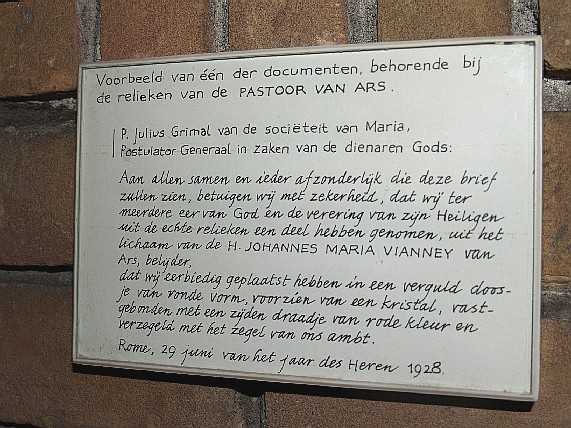 Voorbeeld van één der documenten, behorende bij
de relieken van de PASTOOR VAN ARS.
P. Julius Grimal van de sociëteit van Maria,
Postulator Generaal in zaken van de dienaren Gods:
Aan allen samen en ieder afzonderlijk die deze brief
zullen zien, betuigen wij met zekerheid, dat wij ter
meerdere eer van God en de verering van zijn Heiligen
uit de echte relieken een deel hebben genomen, uit het
lichaam van de H. JOHANNES MARIA VIANNEY van
Ars, belijder,
dat wij eerbiedig geplaatst hebben in een verguld doos-
je van ronde vorm, voorzien van een kristal, vast-
gebonden met een zijden draadje van rode kleur en
verzegeld met het zegel van ons ambt.
Rome, 29 juni van het jaar des Heren 1928.